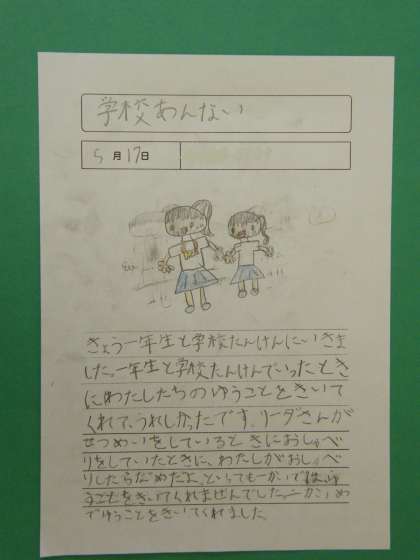 学校あんない
5月17日
きょう一年生と学校たんけんにいきま
した。一年生と学校たんけんでいったとき
にわたしたちのゆうことをきいて
くれて、うれしかったです。リーダさんが
せつめいをしているときにおしゃべ
りをしていたときに、わたしがおしゃべ
りしたらだめだよ。といっても一かいで
すこともきいてくれませんでした。二かいめ
でゆうことをきいてくれました。